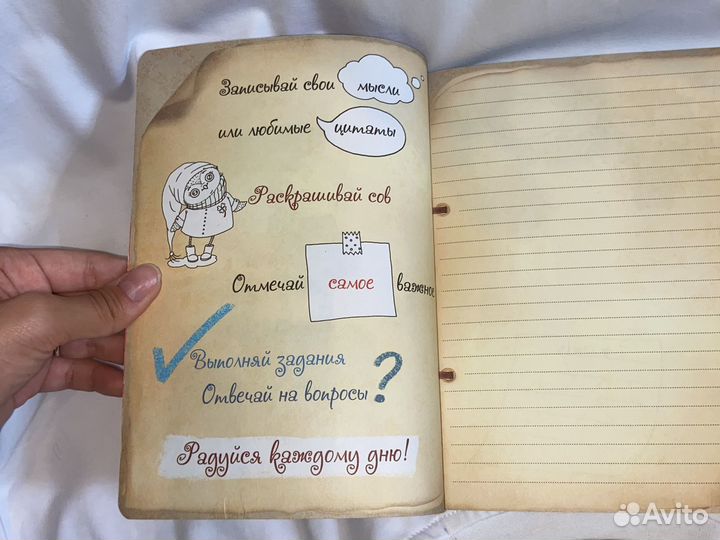 Записывай свои мысли
или любимые цитаты
Раскрашивай сов
Отмечай самое важное
Выполняй задания
Отвечай на вопросы ?
Радуйся каждому дню!
Avito